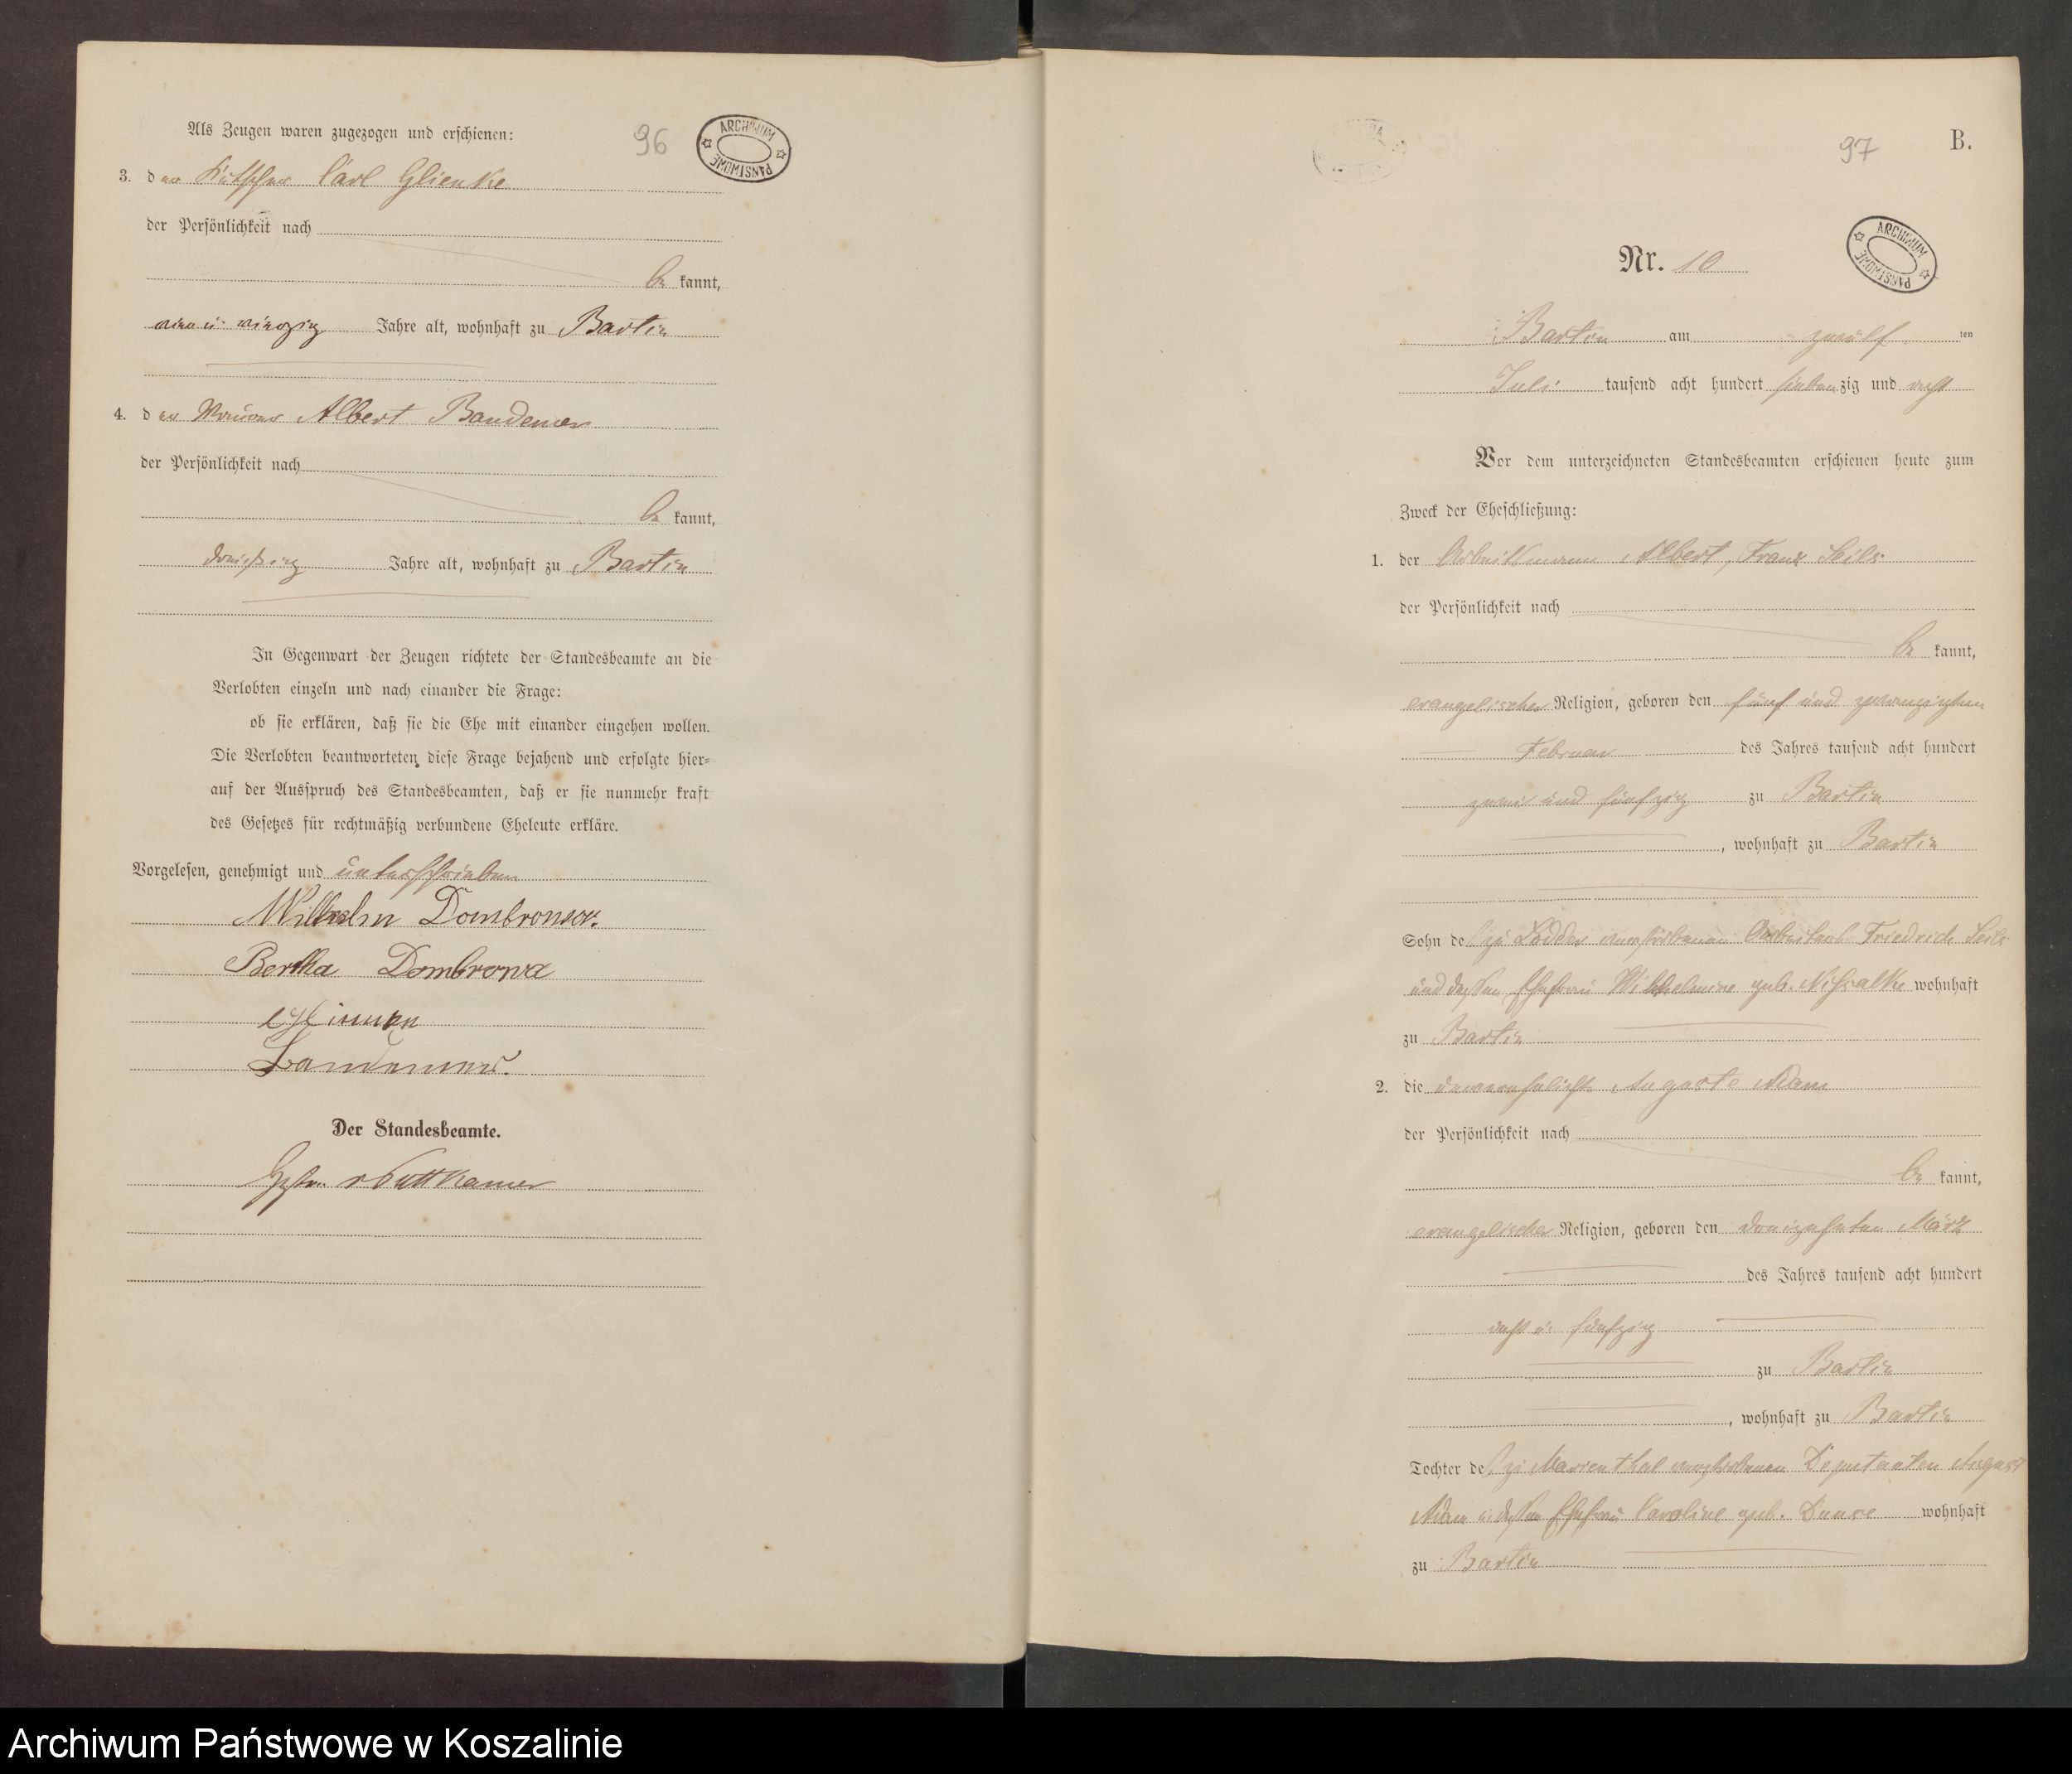 Als Zeugen waren zugezogen und erschienen:
96
ARCHIWUM PAŃSTWOWE
3. der Kutscher Carl Glienke
der Persönlichkeit nach
be kannt,
vier u. vierzig Jahre alt, wohnhaft zu Bartin
4. der Maurer Albert Bandemer
der Persönlichkeit nach
be kannt,
dreißig Jahre alt, wohnhaft zu Bartin
In Gegenwart der Zeugen richtete der Standesbeamte an die
Verlobten einzeln und nach einander die Frage:
ob sie erklären, daß sie die Ehe mit einander eingehen wollen.
Die Verlobten beantworteten diese Frage bejahend und erfolgte hier=
auf der Ausspruch des Standesbeamten, daß er sie nunmehr kraft
des Gesetzes für rechtmäßig verbundene Eheleute erkläre.
Vorgelesen, genehmigt und unterschrieben
Wilhelm
Bertha Dombrowa
Bandemer.
Der Standesbeamte.
v Puttkamer
97
B.
ARCHIWUM PAŃSTWOWE
Nr. 10
Bartin am zwölf ten
Juli tausend acht hundert siebenzig und acht
Vor dem unterzeichneten Standesbeamten erschienen heute zum
Zweck der Eheschließung:
1. der Arbeitsmann Albert, Franz Seils
der Persönlichkeit nach
be kannt,
evangelischer Religion, geboren den fünf und zwanzigsten
Februar des Jahres tausend acht hundert
zwei und fünfzig zu Bartin
, wohnhaft zu Bartin
Sohn des zu Lodder verstorbenen Friedrich Seils
und dessen Ehefrau Wilhelmine geb. wohnhaft
zu Bartin
2. die unverehelichte Auguste Adam
der Persönlichkeit nach
be kannt,
evangelischer Religion, geboren den dreizehnten März
des Jahres tausend acht hundert
acht u. fünfzig
zu Bartin
, wohnhaft zu Bartin
Tochter des zu Marienthal verstorbenen Deputanten August
Adam u. dessen Ehefrau Caroline geb. wohnhaft
zu Bartin
Archiwum Państwowe w Koszalinie